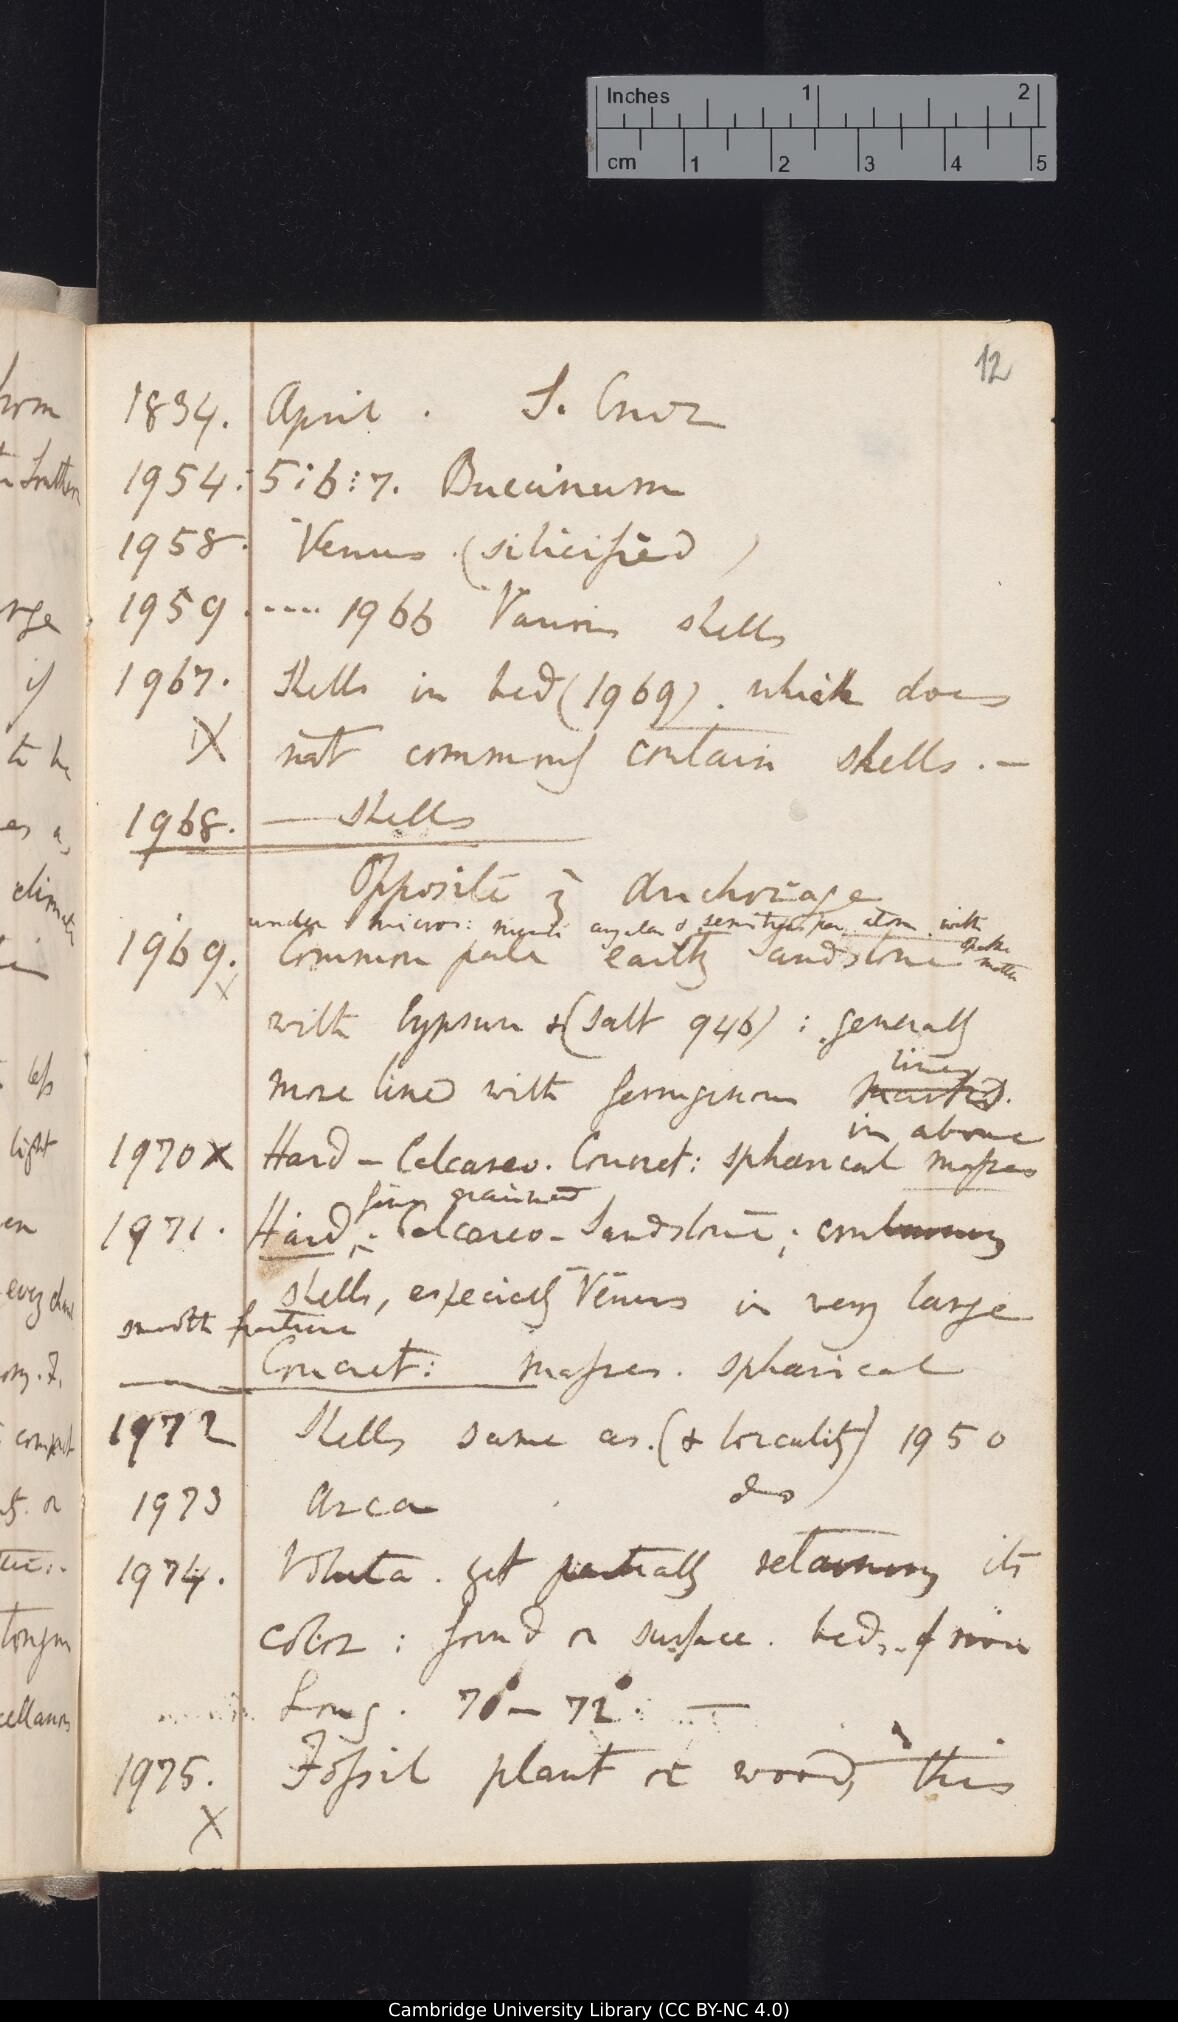 Inches 1 2
cm 1 2 3 4 5
12
1834. April. S. Cruz
1954: 5:6:7. Buccinum
1958. Venus (silicified)
1959 .... 1966 Various shells
1967. Shells in bed (1969). which does
X not commonly contain shells. —
1968. — shells
Opposite Anchorage
under micros: angular & semitranspar. atom. with
opake
matter
1969. Common pale earthy Sandstone
X
with Gypsum & (Salt 946): generally
lines
more lined with ferruginous marks.
in above
1970 X Hard — Calcareo. Concret: sphærical masses
fine grained
1971. Hard, Calcareo — Sandstone; containing
shells, especially Venus in very large
smooth fracture
Concret: masses. sphærical
1972 Shells same as. (& locality) 1950
1973 Arca do
1974. Voluta. yet partially retaining its
color: found on surface. beds. of river
Long. 70° — 72° —
1975. Fossil plant or wood, this
X
from
Southern
if
to be
as
less
light
or
Cambridge University Library (CC BY-NC 4.0)